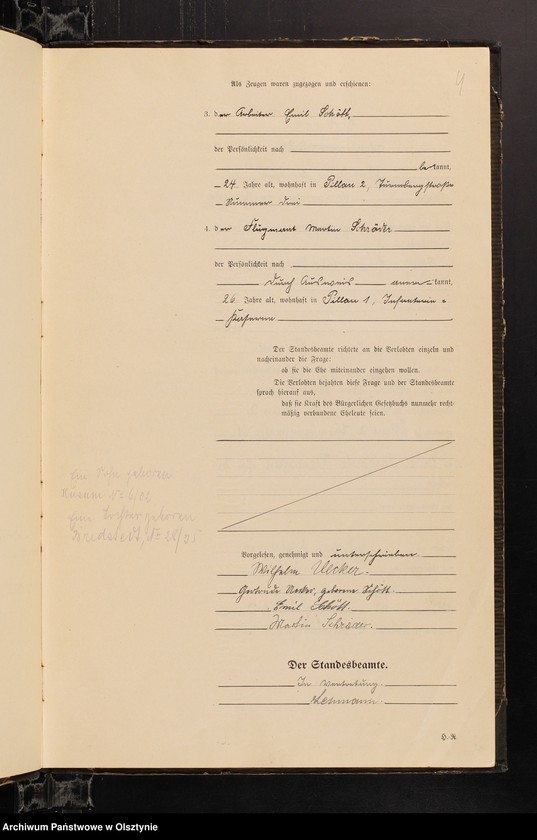 4
Als Zeugen waren zugezogen und erschienen:
3. der Arbeiter Emil Schött,
der Persönlichkeit nach
bekannt,
24 Jahre alt, wohnhaft in Pillau 2, Turmbergstraße
Nummer drei
4. der Flugmaat Martin Schröder
der Persönlichkeit nach
durch Ausweis anerkannt,
26 Jahre alt, wohnhaft in Pillau 1, Infanterie-
Kaserne
Der Standesbeamte richtete an die Verlobten einzeln und
nacheinander die Frage:
ob sie die Ehe miteinander eingehen wollen.
Die Verlobten bejahten diese Frage und der Standesbeamte
sprach hierauf aus,
daß sie kraft des Bürgerlichen Gesetzbuchs nunmehr recht-
mäßig verbundene Eheleute seien.
geboren
Husum
eine Tochter geboren
Bredstedt, Nr 28/35
Vorgelesen, genehmigt und unterschrieben
Wilhelm Uecker.
Gertrude Uecker, geborene Schött.
Emil Schött.
Martin Schröder.
Der Standesbeamte.
In Vertretung.
H.-R.
Archiwum Państwowe w Olsztynie